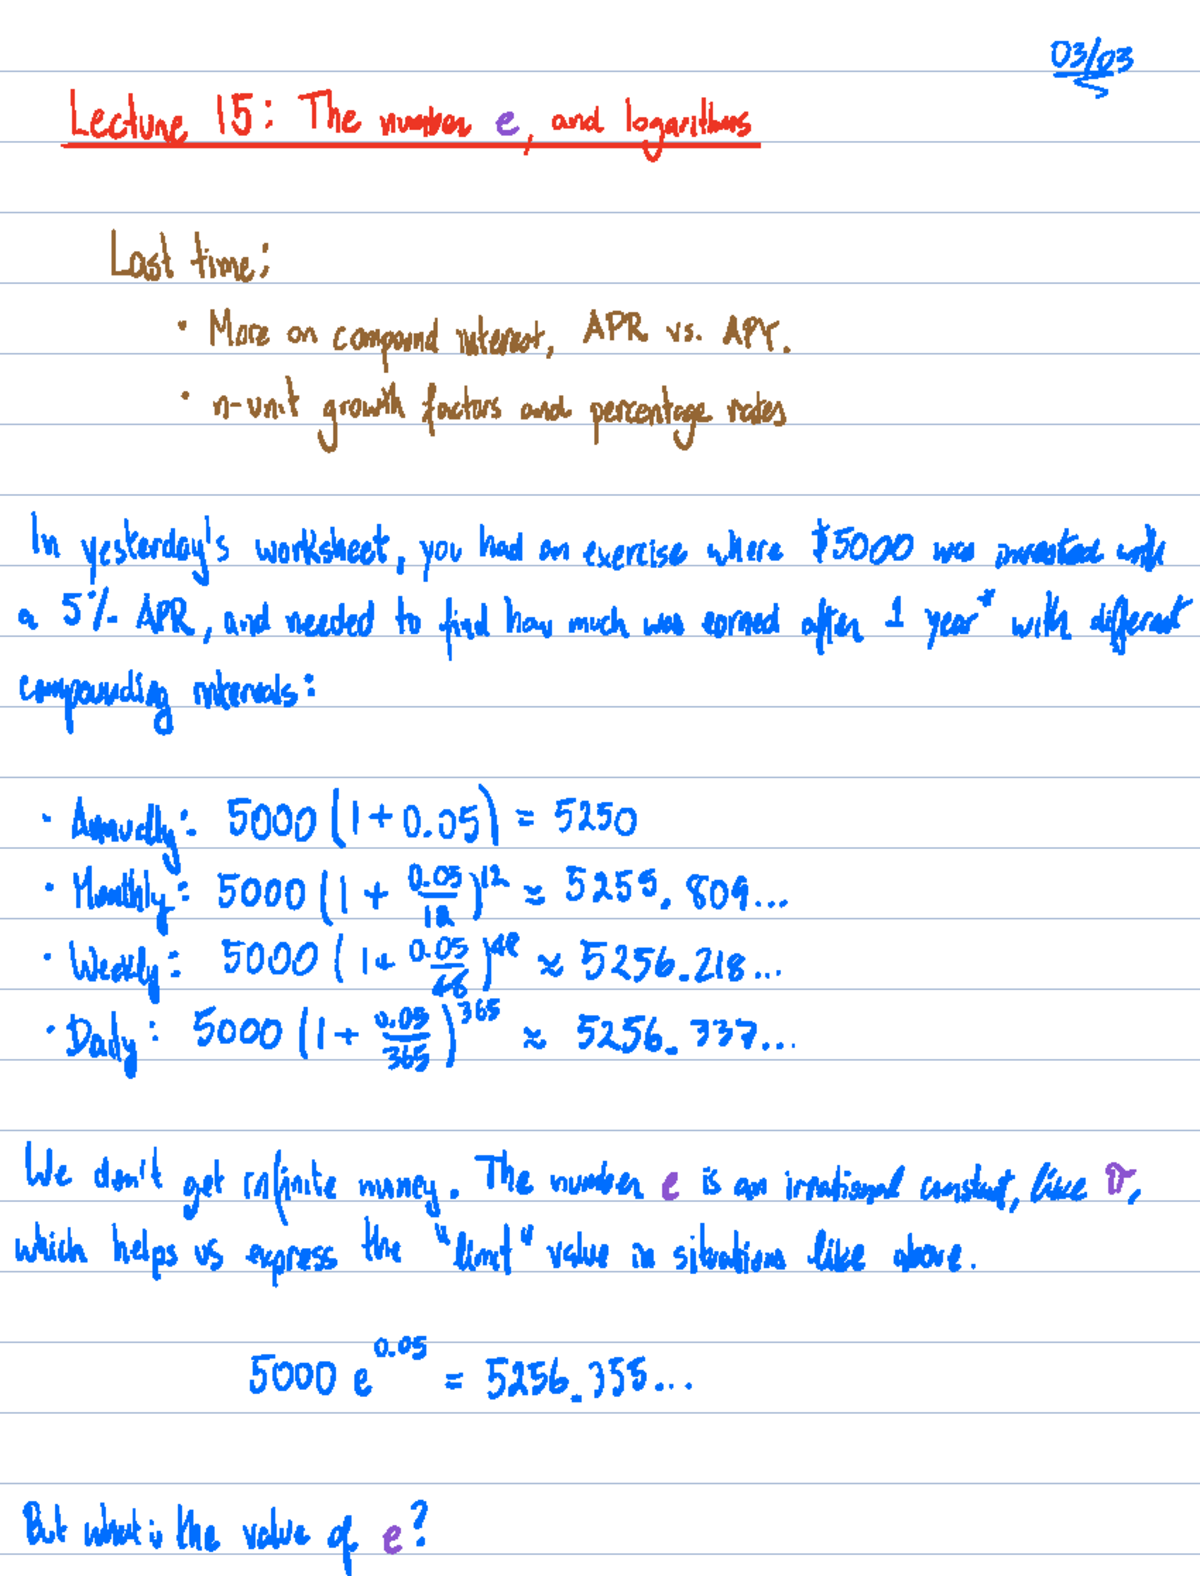 03/03
Lecture 15: The number e, and logarithms
Last time:
• More on compound interest, APR vs. APY.
• n-unit growth factors and percentage rates
In yesterday's worksheet, you had an exercise where $5000 was invested with
a 5% APR, and needed to find how much was earned after 1 year* with different
compounding intervals:
• Annually: 5000 (1 + 0.05) = 5250
• Monthly: 5000 (1 + 0.05/12)^12 ≈ 5255.809...
• Weekly: 5000 (1 + 0.05/48)^48 ≈ 5256.218...
• Daily: 5000 (1 + 0.05/365)^365 ≈ 5256.337...
We don't get infinite money. The number e is an irrational constant, like π,
which helps us express the "limit" value in situations like above.
5000 e^0.05 = 5256.355...
But what is the value of e?